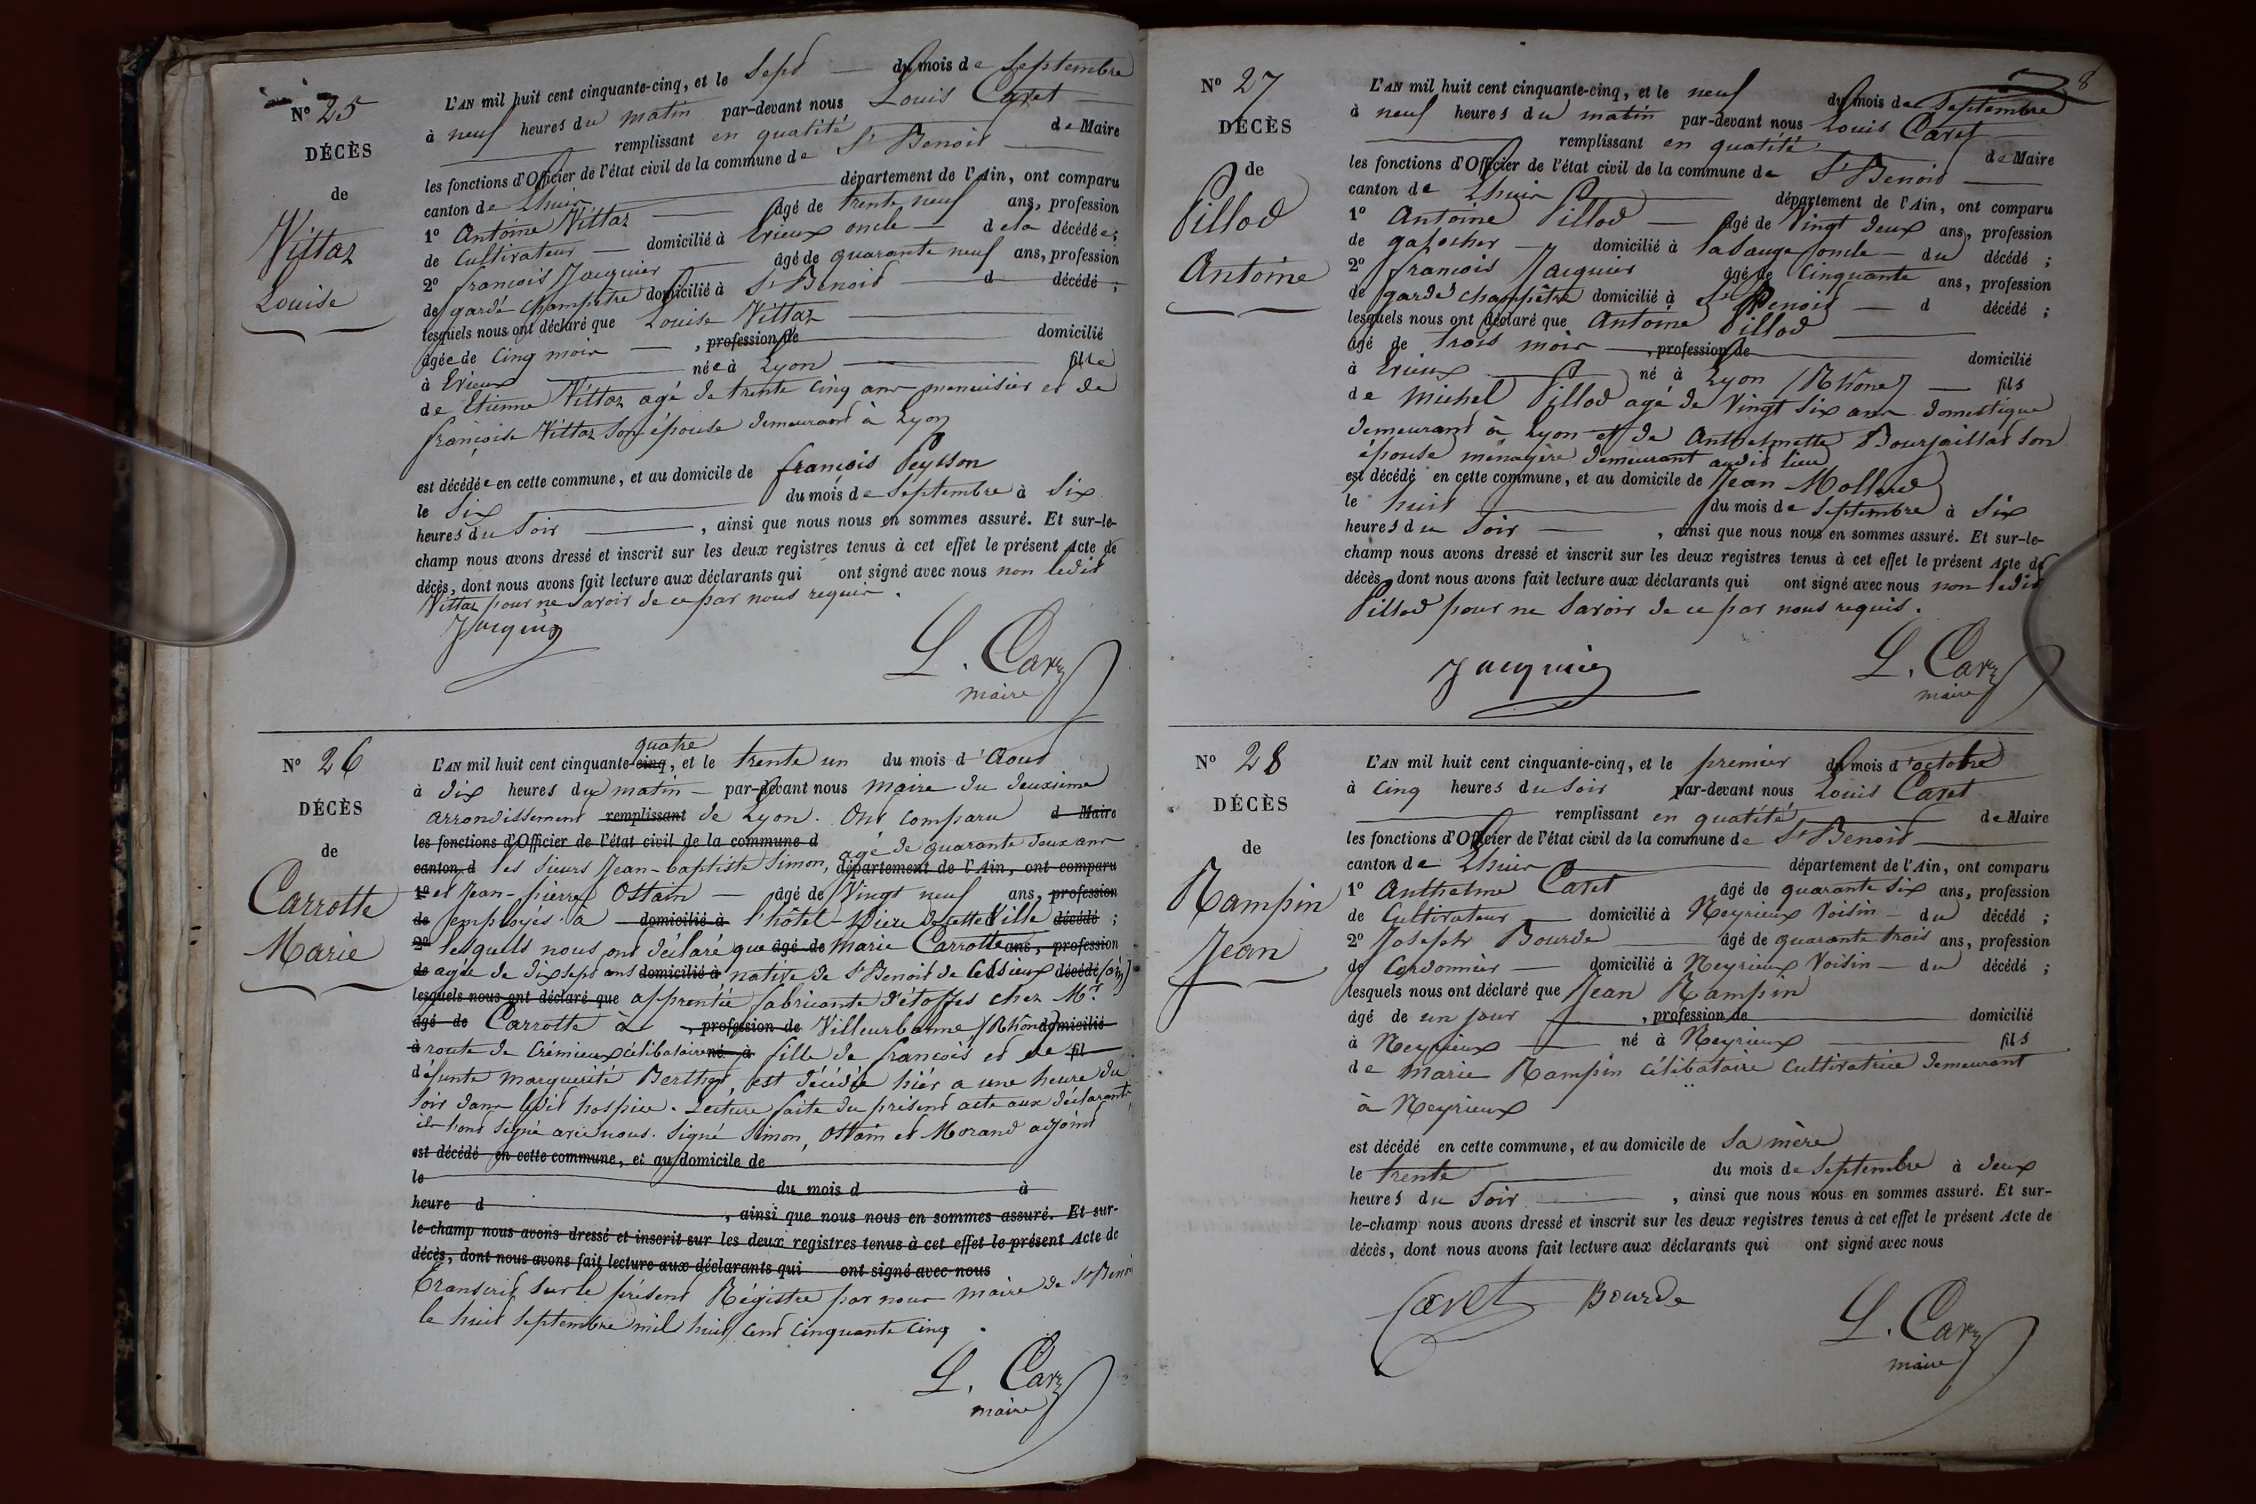 N° 25
DÉCÈS
de
Vittaz
Louise
L'AN mil huit cent cinquante-cinq, et le Sept du mois de Septembre
à neuf heures du matin par-devant nous Louis Caret
remplissant en qualité de Maire
les fonctions d'Officier de l'état civil de la commune de St Benoit
canton de Lhuis département de l'Ain, ont comparu
1° Antoine Vittaz âgé de trente neuf ans, profession
de Cultivateur domicilié à Evieux oncle de la décédée;
2° françois Jacquier âgé de quarante neuf ans, profession
de garde champêtre domicilié à St Benoit d décédé;
lesquels nous ont déclaré que Louise Vittaz
âgée de Cinq mois , profession de domicilié
à Evieux née à Lyon fille
de Etienne Vittaz agé de trente cinq ans menuisier et de
françoise Vittaz son épouse demeurant à Lyon
est décédée en cette commune, et au domicile de françois Peysson
le Six du mois de Septembre à Six
heures du Soir , ainsi que nous nous en sommes assuré. Et sur-le-
champ nous avons dressé et inscrit sur les deux registres tenus à cet effet le présent Acte de
décès, dont nous avons fait lecture aux déclarants qui ont signé avec nous non ledit
Vittaz pour ne Savoir de ce par nous requis.
Jacquier
L. Caret
maire
N° 26
DÉCÈS
de
Carrotte
Marie
quatre
L'AN mil huit cent cinquante-cinq, et le trente un du mois d'Aout
à dix heures du matin par-devant nous maire du deuxième
arrondissement remplissant de Lyon. Ont comparu d Maire
les fonctions d'Officier de l'état civil de la commune d
agé de quarante deux ans
canton d les sieurs Jean-baptiste Simon, département de l'Ain, ont comparu
1° et Jean-pierre Ostain âgé de Vingt neuf ans, profession
de employés à domicilié à l'hôtel-Dieu de cette Ville décédé;
2° lesquels nous ont déclaré que âgé de Marie Carrotte ans, profession
de agée de dix sept ans domicilié à native de St Benoit de Cessieux décédé (ain)
lesquels nous ont déclaré que apprentie fabricante d'étoffes chez Mr
âgé de Carrotte à , profession de Villeurbanne (Rhône) domicilié
à route de Crémieux célibataire né à fille de françois et de fil
défunte marguerite Berthet, est décédée hier a une heure du
Soir dans ledit hospice. Lecture faite du présent acte aux déclarants
ils l'ont Signé avec nous. Signé Simon, Ostain et Morand adjoint
est décédé en cette commune, et au domicile de
le du mois d à
heure d , ainsi que nous nous en sommes assuré. Et sur-
le-champ nous avons dressé et inscrit sur les deux registres tenus à cet effet le présent Acte de
décès, dont nous avons fait lecture aux déclarants qui ont signé avec nous
Transcrit Sur le présent Régistre par nous maire de St Benoit
le huit Septembre mil huit cent cinquante cinq.
L. Caret
maire
8
N° 27
DÉCÈS
de
Pillod
Antoine
L'AN mil huit cent cinquante-cinq, et le neuf du mois de Septembre
à neuf heures du matin par-devant nous Louis Caret
remplissant en qualité de Maire
les fonctions d'Officier de l'état civil de la commune de St Benoit
canton de Lhuis département de l'Ain, ont comparu
1° Antoine Pillod âgé de Vingt deux ans, profession
de galocher domicilié à la Sauge oncle du décédé;
2° françois Jacquier âgé de Cinquante ans, profession
de garde champêtre domicilié à St Benoit d décédé;
lesquels nous ont déclaré que Antoine Pillod
âgé de trois mois , profession de domicilié
à Evieux né à Lyon (Rhône) fils
de Michel Pillod agé de Vingt six ans domestique
demeurant à Lyon et de Anthelmette Bourjaillat Son
épouse ménagère demeurant audit lieu
est décédé en cette commune, et au domicile de Jean Mollard
le huit du mois de Septembre à Six
heures du Soir , ainsi que nous nous en sommes assuré. Et sur-le-
champ nous avons dressé et inscrit sur les deux registres tenus à cet effet le présent Acte de
décès, dont nous avons fait lecture aux déclarants qui ont signé avec nous non ledit
Pillod pour ne Savoir de ce par nous requis.
Jacquier
L. Caret
maire
N° 28
DÉCÈS
de
Rampin
Jean
L'AN mil huit cent cinquante-cinq, et le premier du mois d'octobre
à Cinq heures du Soir par-devant nous Louis Caret
remplissant en qualité de Maire
les fonctions d'Officier de l'état civil de la commune de St Benoit
canton de Lhuis département de l'Ain, ont comparu
1° Anthelme Caret âgé de quarante Six ans, profession
de Cultivateur domicilié à Neyrieux Voisin du décédé;
2° Joseph Bourde âgé de quarante trois ans, profession
de Cordonnier domicilié à Neyrieux Voisin du décédé;
lesquels nous ont déclaré que Jean Rampin
âgé de un jour , profession de domicilié
à Neyrieux né à Neyrieux fils
de Marie Rampin célibataire Cultivatrice demeurant
à Neyrieux
est décédé en cette commune, et au domicile de Sa mère
le trente du mois de Septembre à deux
heures du Soir , ainsi que nous nous en sommes assuré. Et sur-
le-champ nous avons dressé et inscrit sur les deux registres tenus à cet effet le présent Acte de
décès, dont nous avons fait lecture aux déclarants qui ont signé avec nous
Caret Bourde
L. Caret
maire